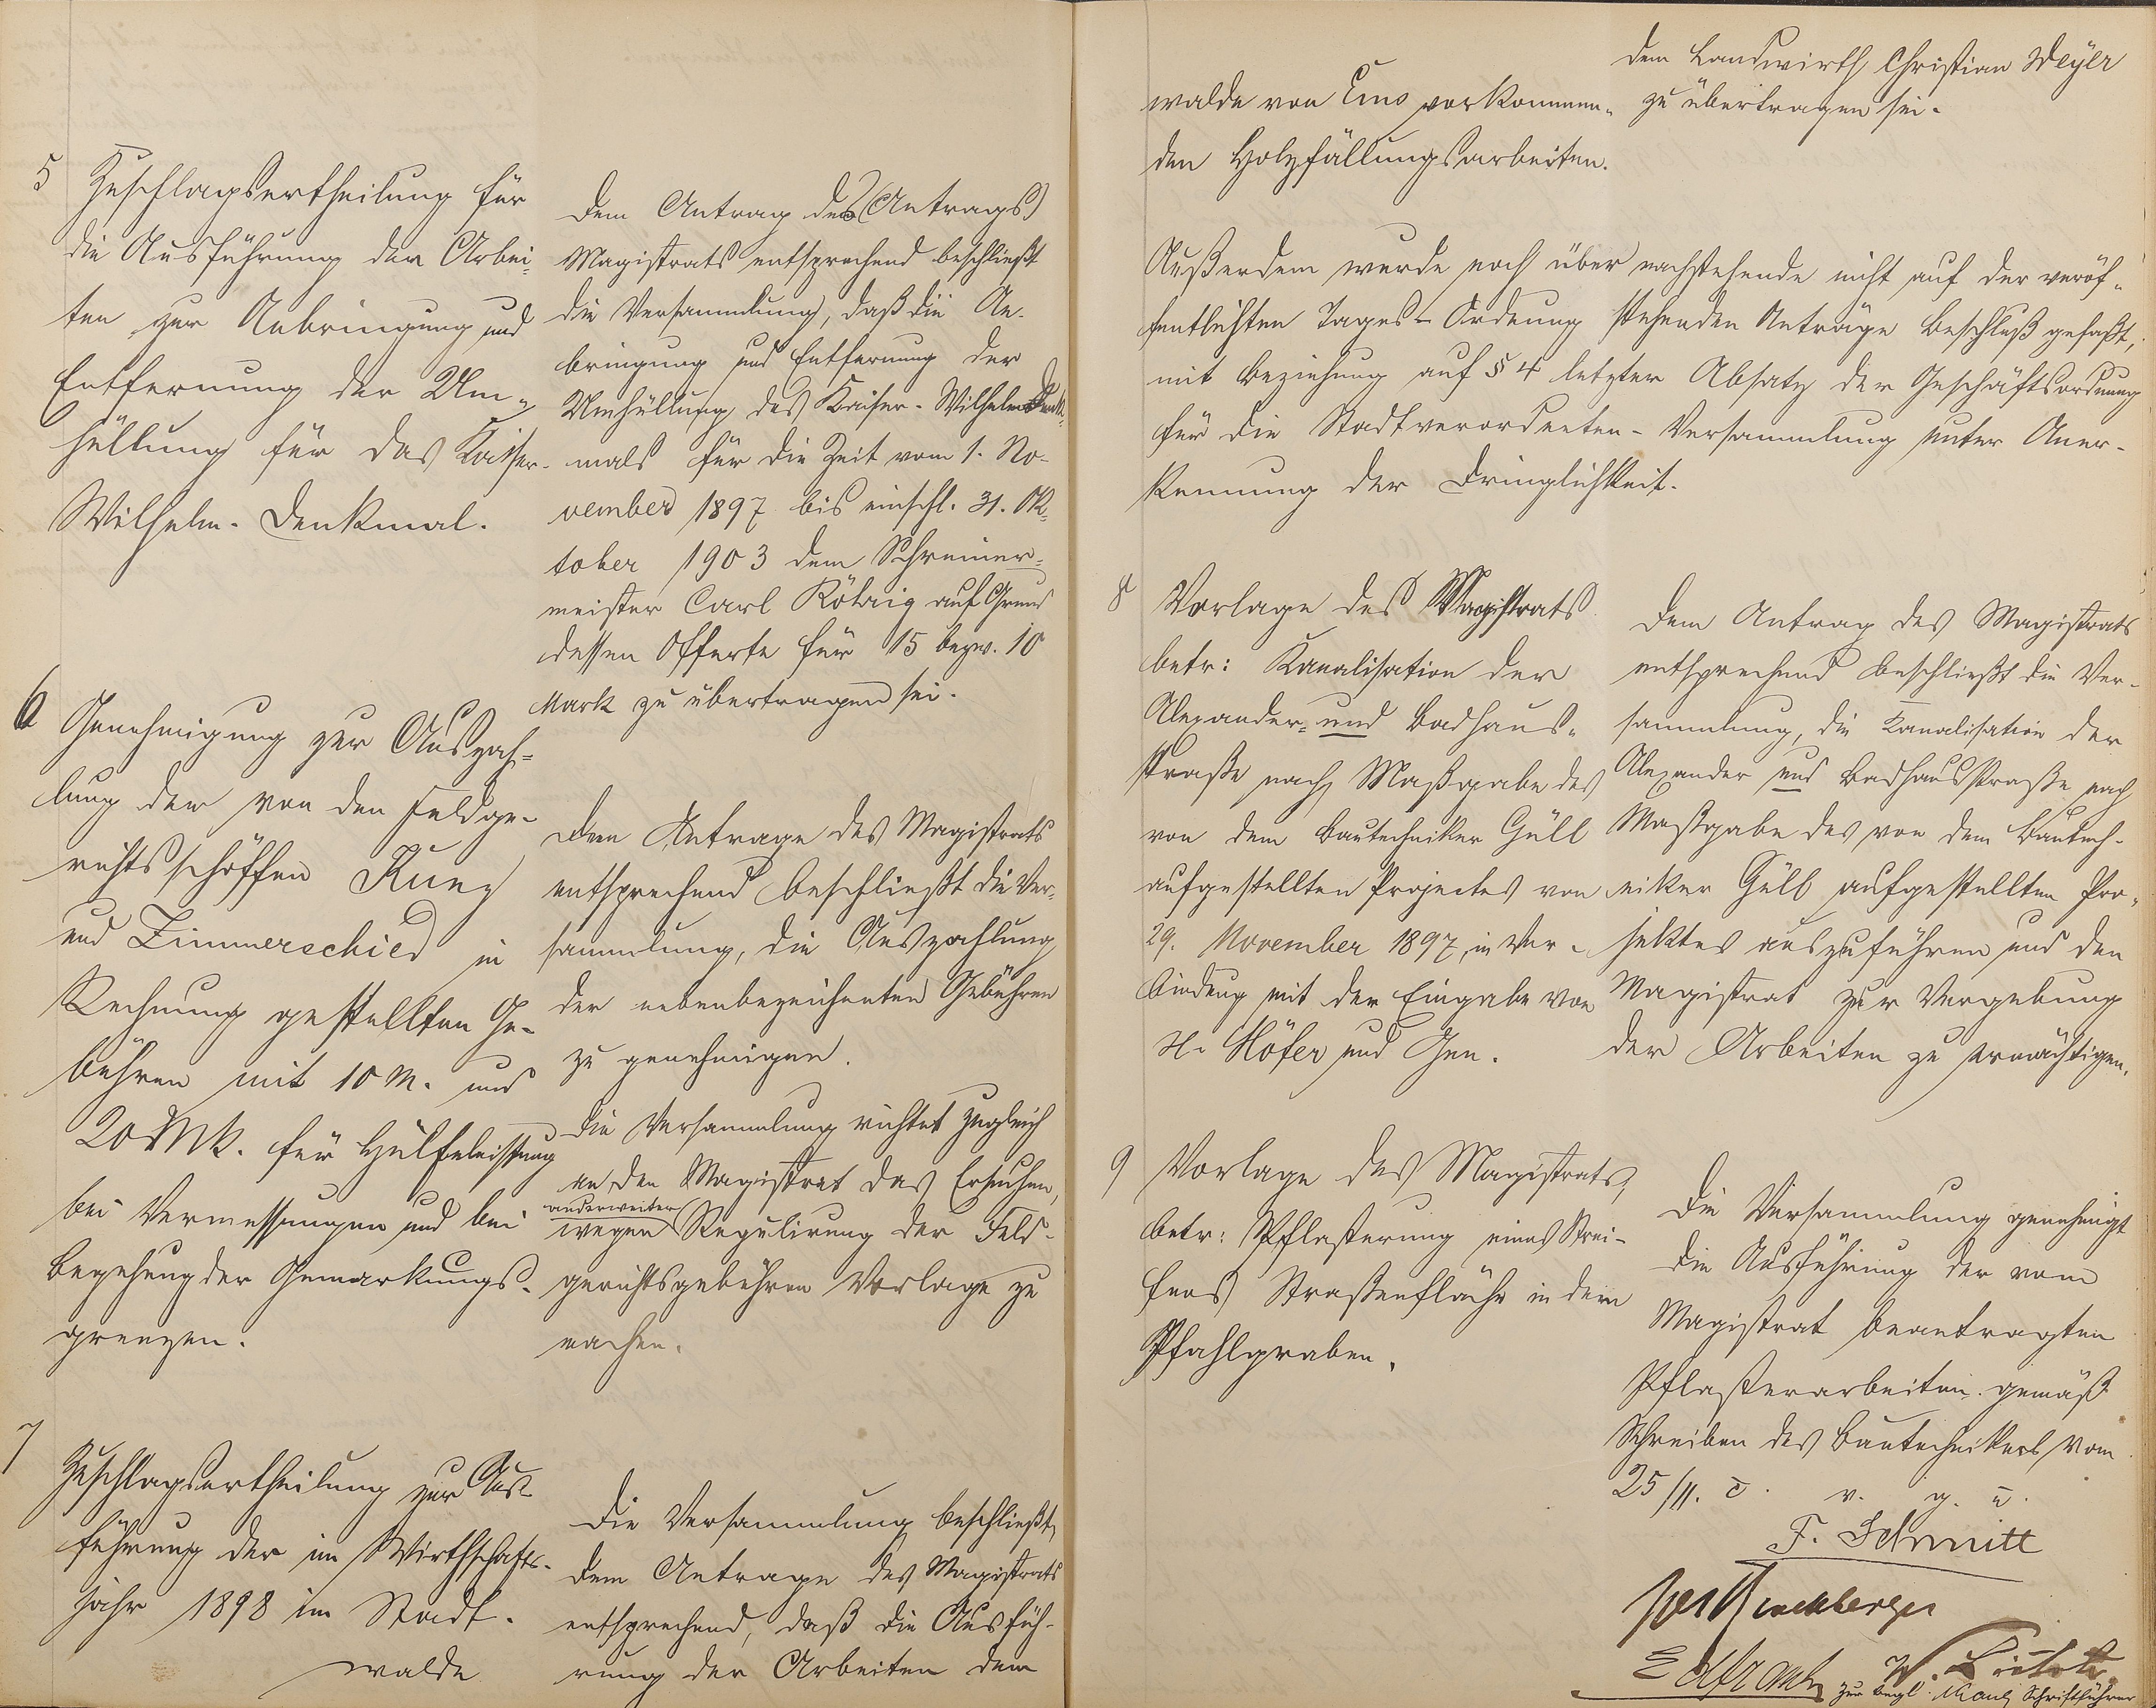 5 Zuschlagsertheilung für
die Ausführung der Arbei-
ten zur Anbringung und
Entfernung der Um-
hüllung für das Kaiser-
Wilhelm-Denkmal.
Dem Antrag des (Antrags)
Magistrats entsprechend beschließt
die Versammlung, daß die An-
bringung und Entfernung der
Umhüllung des Kaiser-Wilhelm Denk-
mals für die Zeit vom 1. No-
vember 1897 bis einschl. 31. Ok-
tober 1903 dem Schreiner-
meister Carl Röhrig auf Grund
dessen Offerte für 15 bezw. 10
Mark zu übertragen sei.
6 Genehmigung zur Auszah-
lung der von den Feldge-
richtsschöffen Kunz
und Zimmerschied in
Rechnung gestellten Ge-
bühren mit 10 M. und
20 Mk. für Hülfeleistung
bei Vermessungen und bei
Begehung der Gemarkungs-
grenzen.
Dem Antrage des Magistrats
entsprechend beschließt die Ver-
sammlung, die Auszahlung
der nebenbezeichneten Gebühren
zu genehmigen.
Die Versammlung richtet zugleich
an den Magistrat das Ersuchen,
wegen anderweiter Regulirung der Feld-
gerichtsgebühren Vorlage zu
machen.
7 Zuschlagsertheilung zur Aus-
führung der im Wirthschafts-
jahr 1898 im Stadt-
walde
Die Versammlung beschließt,
dem Antrage des Magistrats
entsprechend, daß die Ausfüh-
rung der Arbeiten dem
walde von Ems vorkommen-
den Holzfällungsarbeiten.
dem Landwirth Christian Weyer
zu übertragen sei.
Außerdem wurde noch über nachstehende nicht auf der veröf-
fentlichten Tages-Ordnung stehenden Anträge Beschluß gefaßt,
mit Beziehung auf § 4 letzter Absatz der Geschäftsordnung
für die Stadtverordneten-Versammlung unter Aner-
kennung der Dringlichkeit.
8 Vorlage des Magistrats
betr: Kanalisation der
Alexander- und Badhaus-
straße nach Maßgabe des
von dem Bautechniker Güll
aufgestellten Projectes von
29. November 1897, in Ver-
bindung mit der Eingabe von
H. Höfer und Gen.
Dem Antrag des Magistrats
entsprechend beschließt die Ver-
sammlung, die Kanalisation der
Alexander und Badhausstraße nach
Maßgabe des von dem Bautech-
niker Güll aufgestellten Pro-
jektes auszuführen und den
Magistrat zur Vergebung
der Arbeiten zu ermächtigen.
9 Vorlage des Magistrats,
betr: Pflasterung eines Strei-
fens Straßenfläche in dem
Pfahlgraben.
Die Versammlung genehmigt
die Ausführung der vom
Magistrat beantragten
Pflasterarbeiten gemäß
Schreiben des Bautechnikers vom
25/11. c. v. g. u.
F. Schmitt
zur Begl. Schriftführer